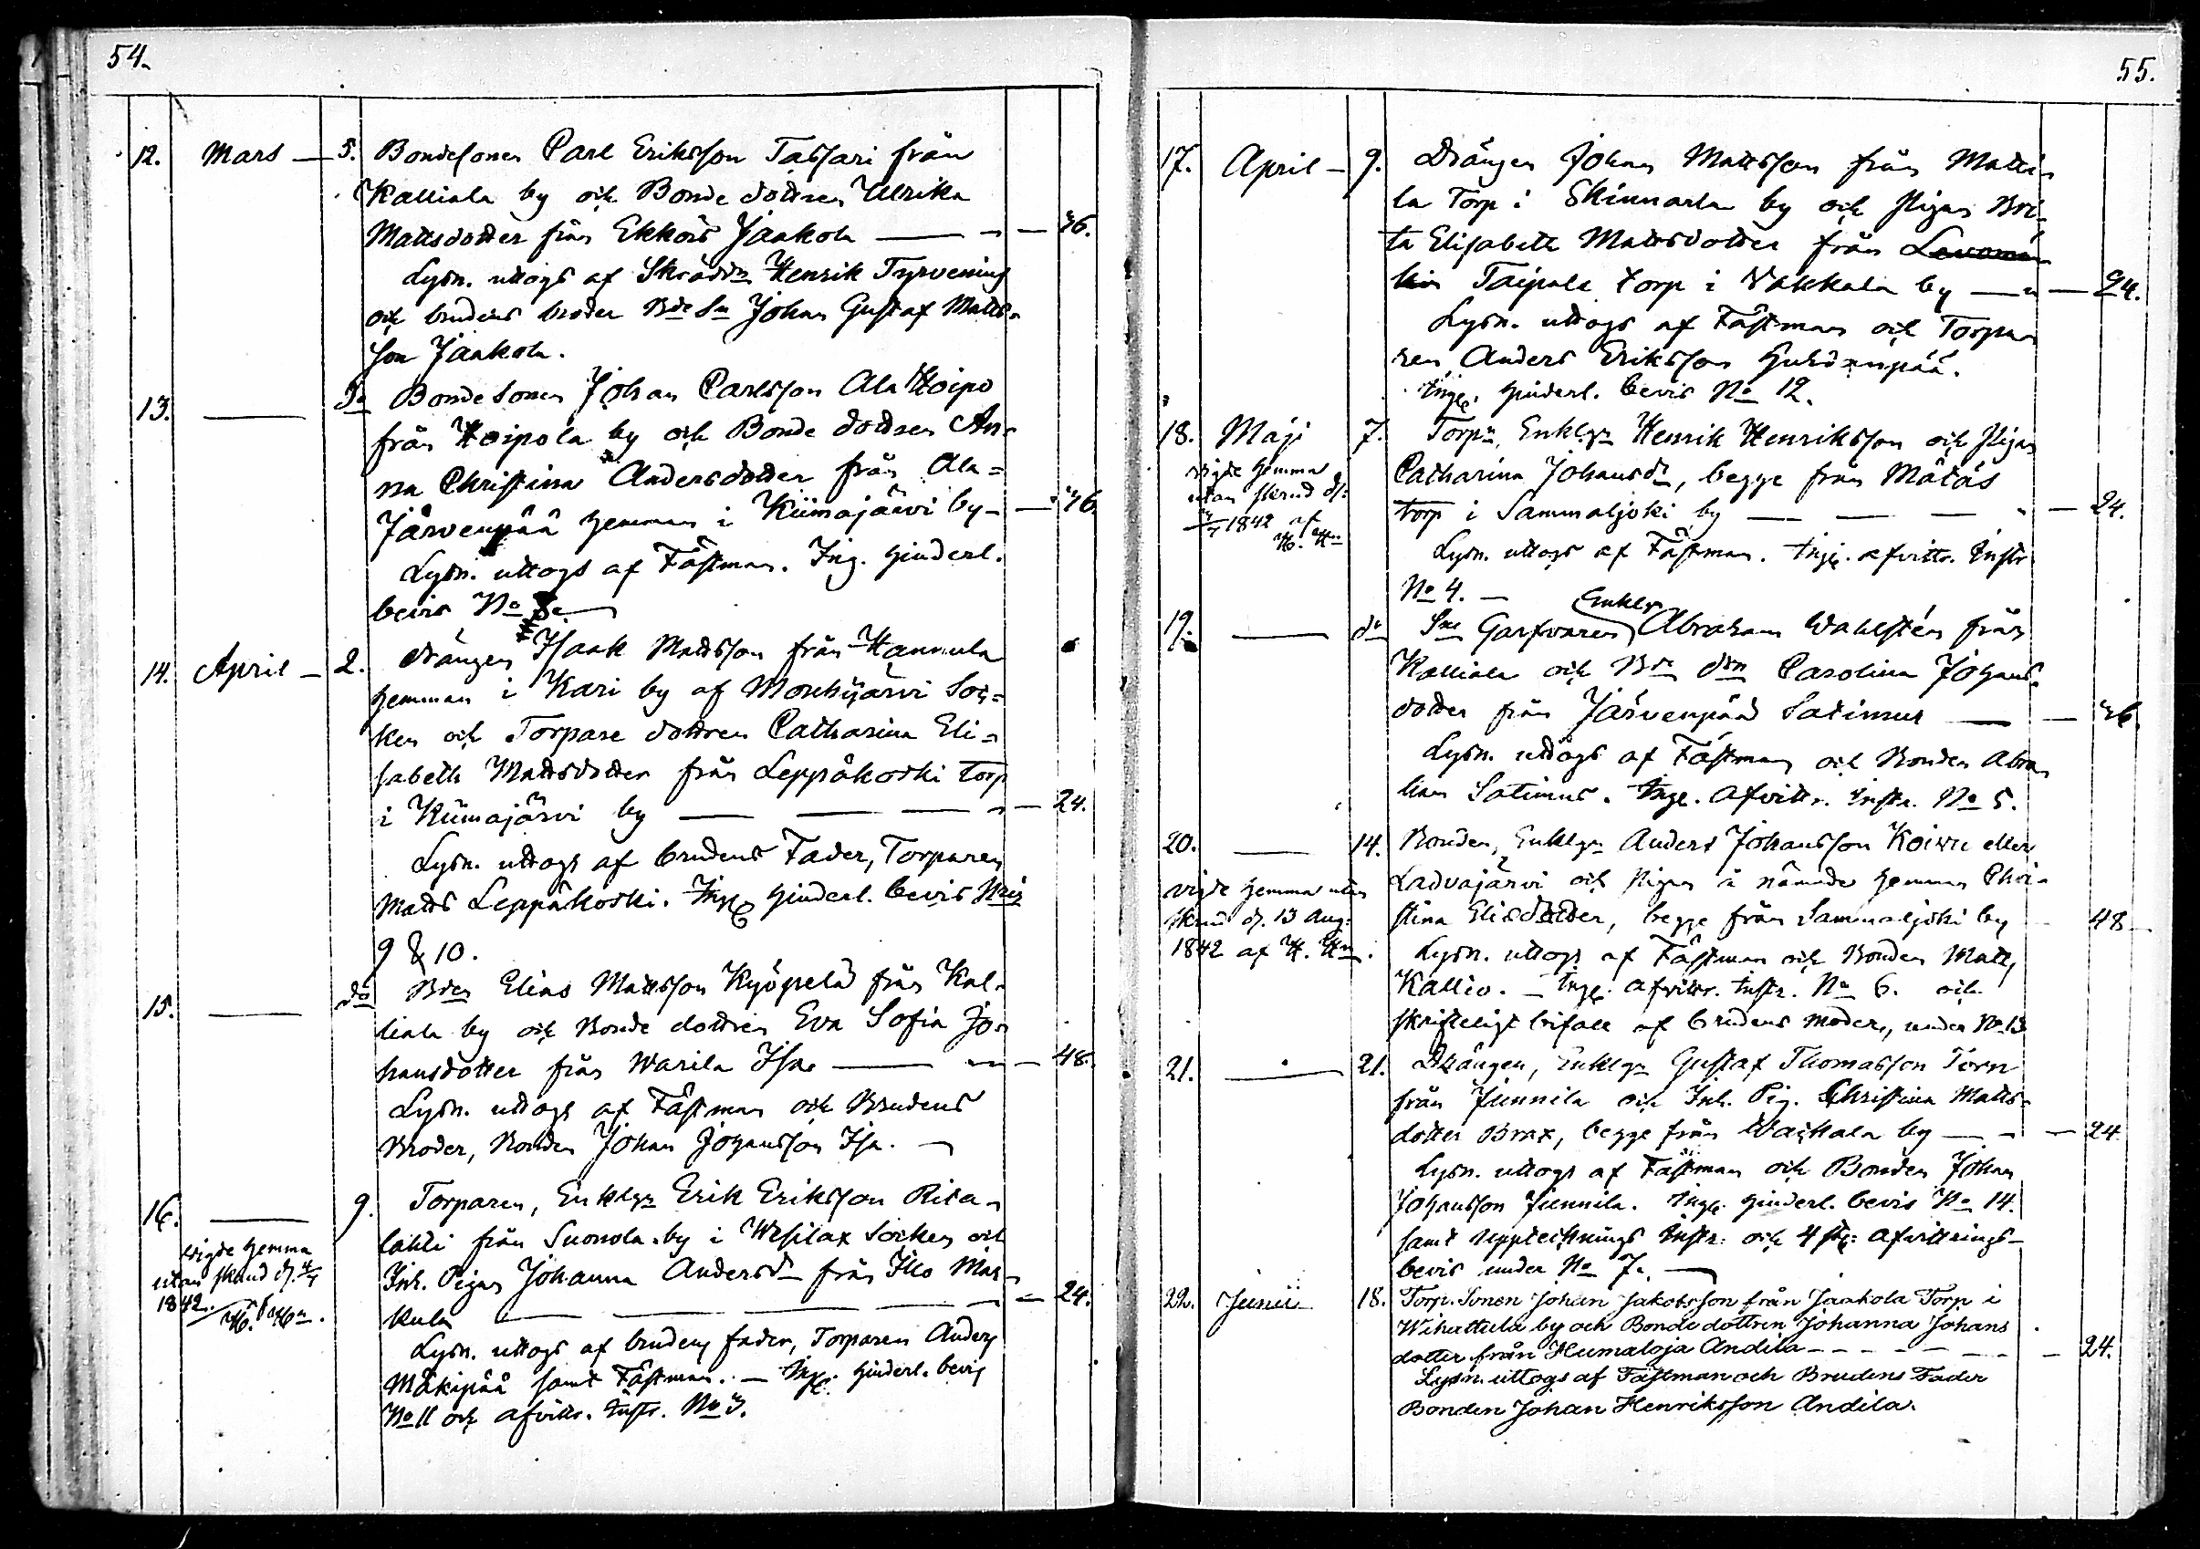 54.
12. Mars — 5. Bondesonen Carl Eriksson Tassari från
Kalliala by och Bonde dottren Ulrika
Mattsdotter från Ekkois Jaakola — " — 36.
Lysn. uttogs af Skrädd Henrik Tyrvening
och brudens broder Bde Sn Johan Gustaf Matts-
son Jaakola.
13. — do Bondesonen Johan Carlsson Ala Hoipo
från Hoipola by och Bonde dottren An-
na Christina Andersdotter från Ala=
Järvenpää hemman i Kiimajärvi by — 36.
Lysn. uttogs af Fästman. Ing. hinderl.
bevis No 8.
14. April — 2. Drängen Isaak Mattsson från Hannula
hemman i Kari by af Mouhijärvi Soc-
ken och Torpare dottren Catharina Eli=
sabeth Mattsdotter från Leppäkoski torp
i Kiimajärvi by — — — " — 24.
Lysn. uttogs af brudens Fader, Torparen
Matts Leppäkoski. Ingg hinderl. bevis Nris
9 & 10.
15. — do Bden Elias Mattsson Kyöpelä från Kal-
liala by och Bonde dottren Eva Sofia Jo-
hansdotter från Warila Isa — " — 48.
Lysn. uttogs af Fästman och Brudens
Broder, Bonden Johan Johansson Isa. —
16. — 9. Torparen, Enklgn Erik Eriksson Rita-
lahti från Suonola by i Wesilax Socken och
Inh. Pigan Johanna Andersdr från Illo Mar-
kula — — — — — 24.
Wigde hemma
utan skrud d. 4/4
1842. af
H. Hn.
Lysn. uttogs af brudens fader, Torparen Anders
Mäkipää samt Fästman. — Ingg. hinderl. bevis
No 11 och afvittr. Instr. No 3.
55.
17. April — 9. Drängen Johan Mattsson från Matti-
la Torp i Skinnarla by och Pigan Bri-
ta Elisabeth Mattsdotter från
Taipale torp i Wakkala by — " — 24.
Lysn. uttogs af Fästman och Torpa-
ren Anders Eriksson
Ingg. hinderl. bevis No 12.
18. Maji 7. Torpn, Enklgn Henrik Henriksson och Pigan
Catharina Johansdr, begge från Mätäs
torp i Sammaljoki by — — — " — 24.
Wigde hemma
utan skrud d.
1842 af
H. Hn
Lysn. uttogs af Fästman. Ingg. afvittr. Instr
No 4. —
19. — do Sne Garfvaren Enklgn Abraham Wahlstén från
Kalliala och Bde dtrn Carolina Johans-
dotter från Järvenpää Satimus — — 36.
Lysn. uttogs af Fästman och Bonden Abra-
ham Satimus. Ingg. afvittr. Instr. No 5.
20. — 14. Bonden, Enklgn Anders Johansson Koivu eller
Ladvajärvi och Pigan å nämnde hemman Chri-
stina Elisdotter, begge från Sammaljoki by — 48
Wigde hemma utan
skrud d. 13 Aug.
1842 af H. Hn.
Lysn. uttogs af Fästman och Bonden Matts
Kallio. — Ingg. afvittr. Instr. No 6. och
skrifteligt bifall af brudens moder, under No 13
21. — 21. Drängen, Enklgn Gustaf Thomasson Törn
från Junnila och Inh. Pig. Christina Matts-
dotter Brax, begge från Wakkala by — " — 24
Lysn. uttogs af Fästman och Bonden Johan
Johansson Junnila. Ingg. hinderl. bevis No 14.
samt Uppteknings Instr. och 4 st. afvittrings-
bevis under No 7. —
22. Junii 18. Torp. Sonen Johan Jakobsson från Jaakola Torp i
Wihattula by och Bonde dottren Johanna Johans
dotter från Humaloja Andila — — — — 24.
Lysn. uttogs af Fästman och Brudens Fader
Bonden Johan Henriksson Andila.